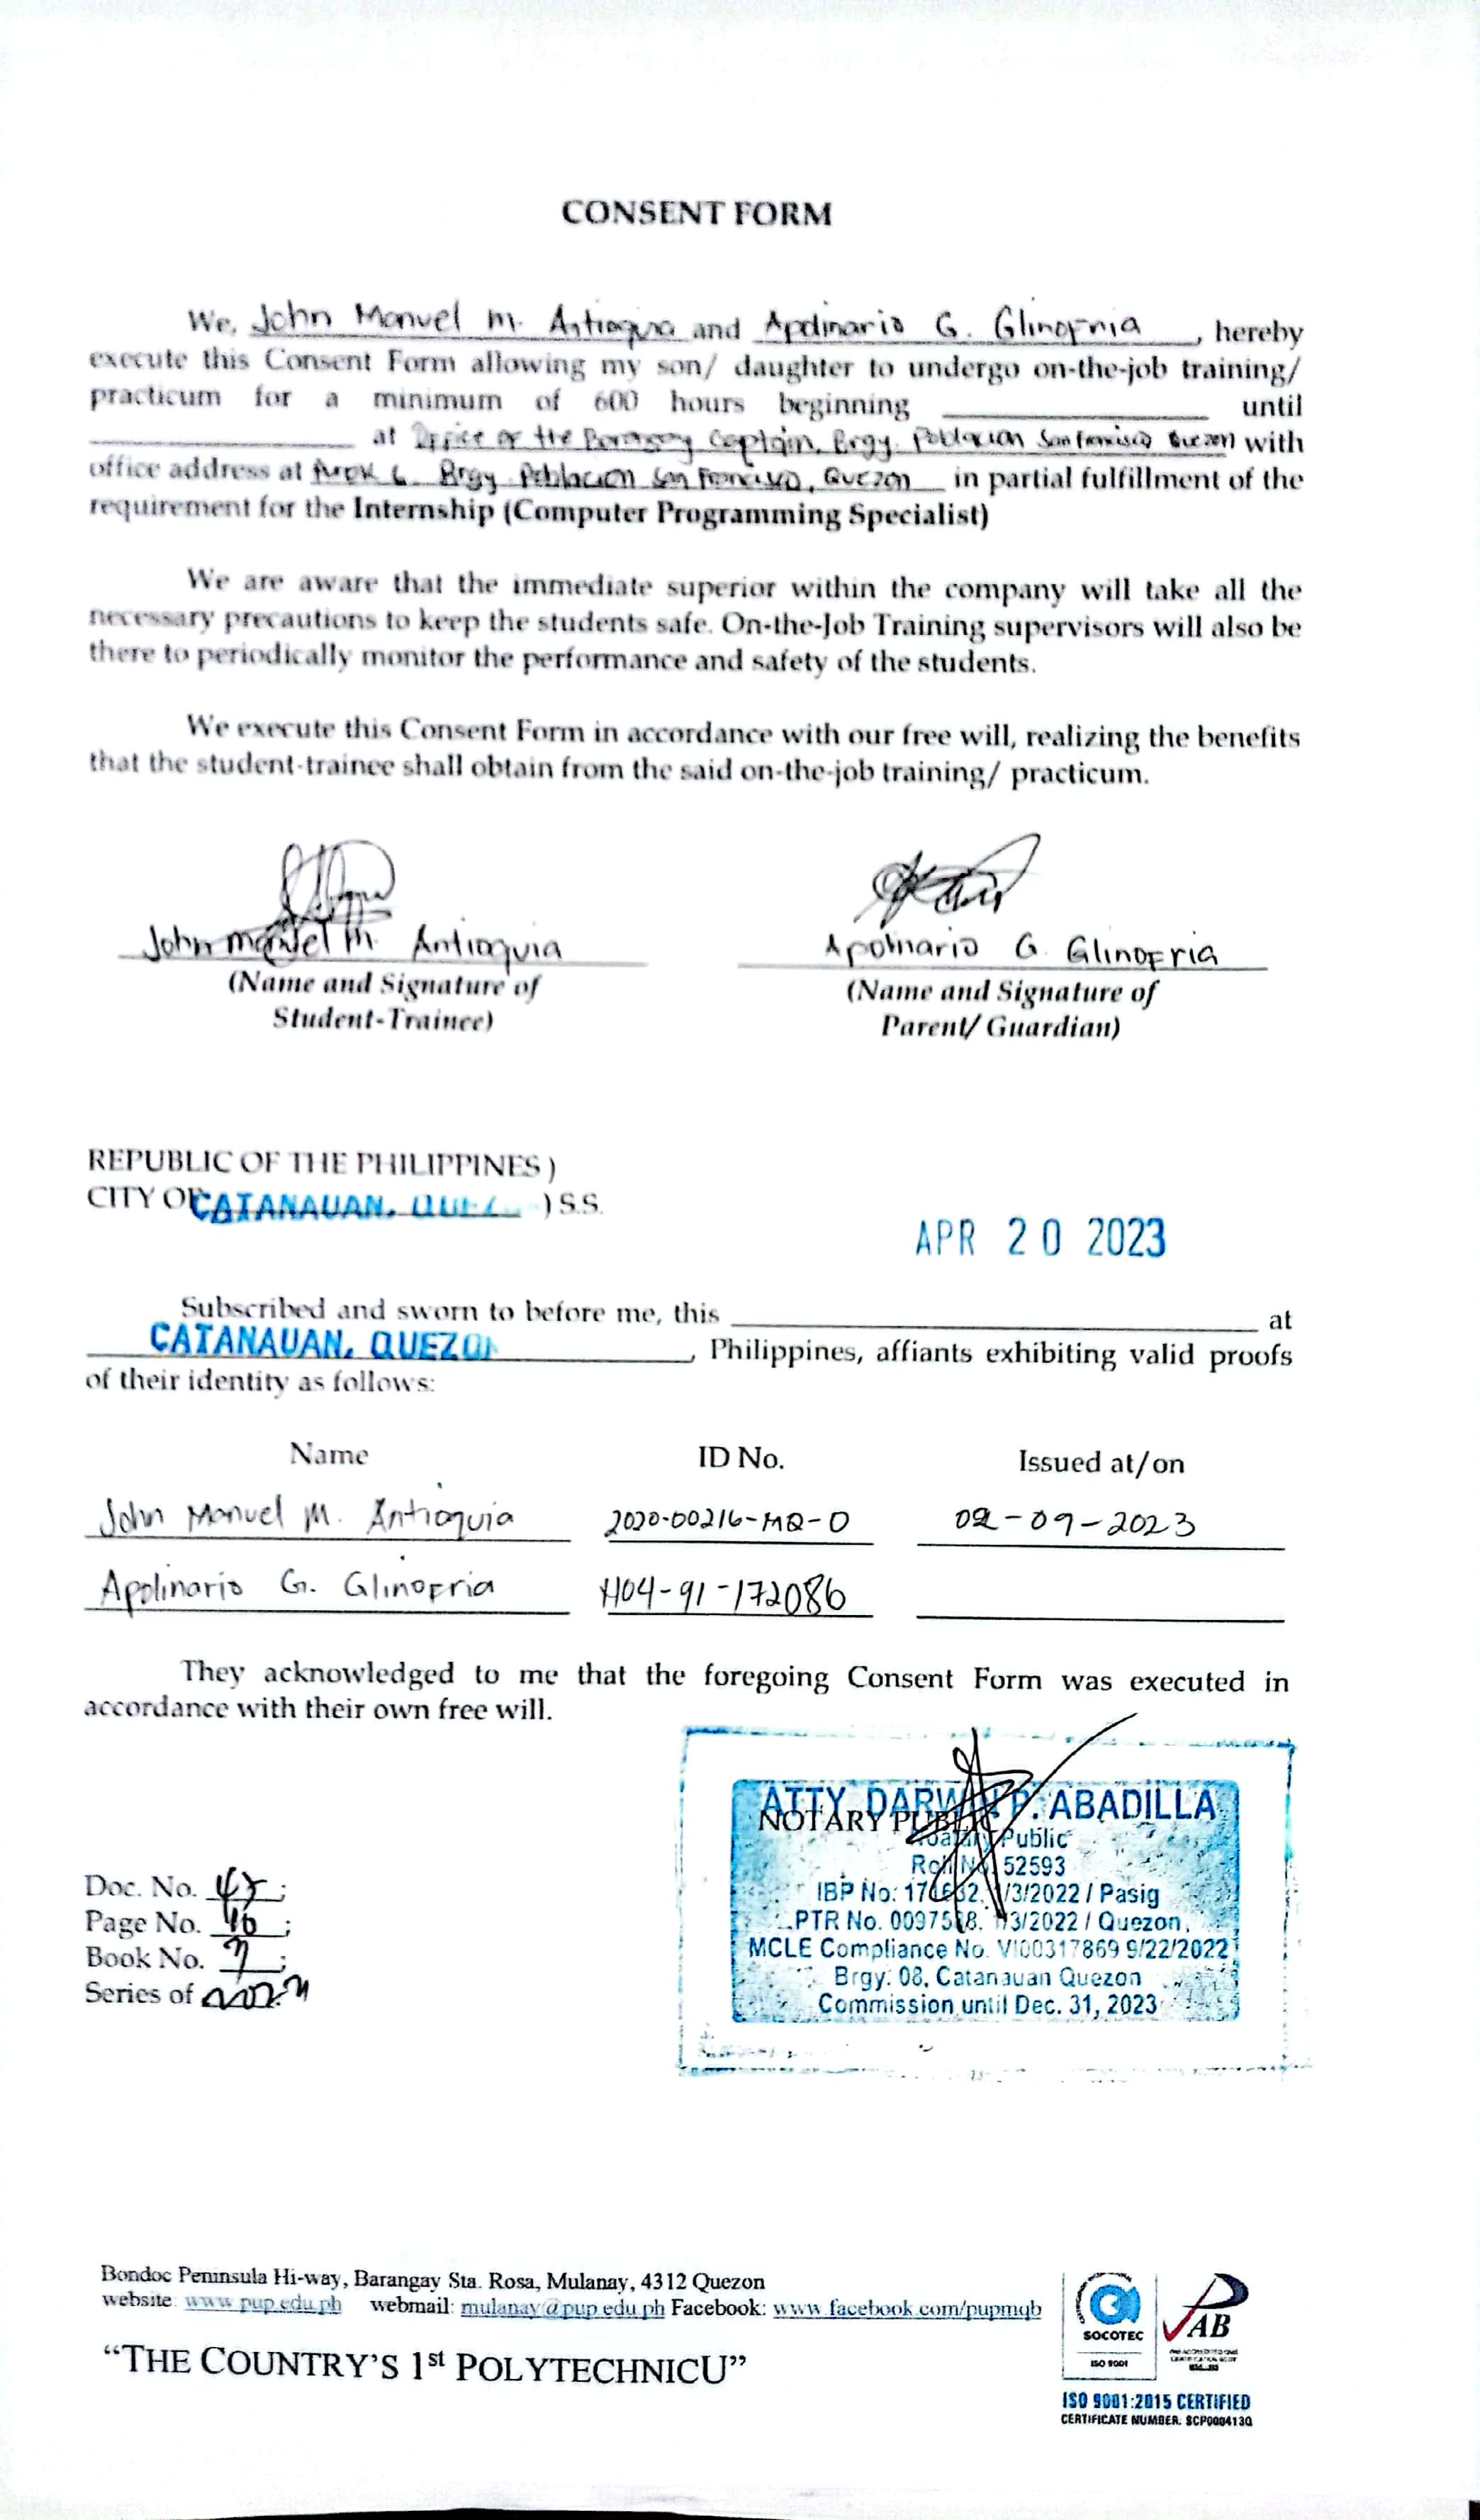 CONSENT FORM
We, John Manuel M. Antioquia and Apolinario G. Glinofria, hereby
execute this Consent Form allowing my son/ daughter to undergo on-the-job training/
practicum for a minimum of 600 hours beginning ____________ until
____________ at Office of the Barangay Captain, Brgy. Poblacion San Francisco Quezon with
office address at Purok 6 Brgy Poblacion San Francisco, Quezon in partial fulfillment of the
requirement for the Internship (Computer Programming Specialist)
We are aware that the immediate superior within the company will take all the
necessary precautions to keep the students safe. On-the-Job Training supervisors will also be
there to periodically monitor the performance and safety of the students.
We execute this Consent Form in accordance with our free will, realizing the benefits
that the student-trainee shall obtain from the said on-the-job training/ practicum.
John Manuel M. Antioquia Apolinario G. Glinofria
(Name and Signature of (Name and Signature of
Student-Trainee) Parent/ Guardian)
REPUBLIC OF THE PHILIPPINES )
CITY OF CATANAUAN, ) S.S.
APR 20 2023
Subscribed and sworn to before me, this ____________ at
CATANAUAN, QUEZON, Philippines, affiants exhibiting valid proofs
of their identity as follows:
Name ID No. Issued at/on
John Manuel M. Antioquia 2020-00216-MQ-0 02-09-2023
Apolinario G. Glinofria H04-91-172086
They acknowledged to me that the foregoing Consent Form was executed in
accordance with their own free will.
ATTY DARWIN P. ABADILLA
NOTARY PUBLIC
Notary Public
Roll No. 52593
IBP No. 1/3/2022 / Pasig
PTR No. 1/3/2022 / Quezon
MCLE Compliance No. VI00317869 9/22/2022
Brgy. 08, Catanauan Quezon
Commission until Dec. 31, 2023
Doc. No. ;
Page No. ;
Book No. ;
Series of
Bondoc Peninsula Hi-way, Barangay Sta. Rosa, Mulanay, 4312 Quezon
website: www.pup.edu.ph webmail: mulanay@pup.edu.ph Facebook: www.facebook.com/pupmqb
"THE COUNTRY'S 1st POLYTECHNICU"
SOCOTEC
ISO 9001
AB
ISO 9001:2015 CERTIFIED
CERTIFICATE NUMBER: SCP000413Q